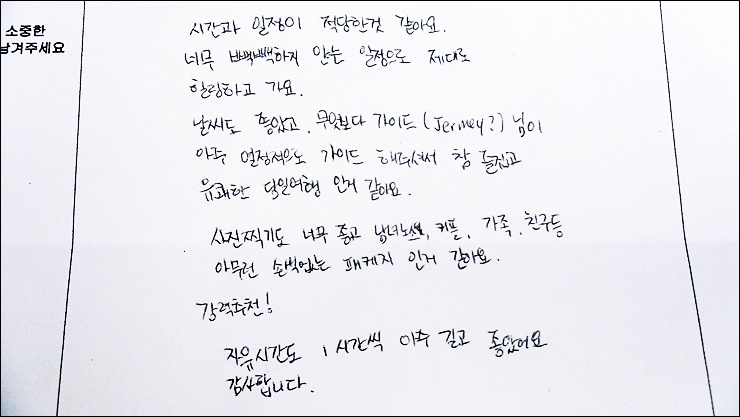 소중한
남겨주세요
시간과 일정이 적당한것 같아요.
너무 빡빡하지 안는 일정으로 제대로
힐링하고 가요.
날씨도 좋았고, 무엇보다 가이드 (Jermey?) 님이
아주 열정적으로 가이드 해주셔서 참 즐겁고
유쾌한 당일여행 인거 같아요.
사진찍기도 너무 좋고 남녀노소, 커플, 가족, 친구등
아무런 손색없는 패케지 인거 같아요.
강력추천!
자유시간도 1시간씩 아주 길고 좋았어요
감사합니다.